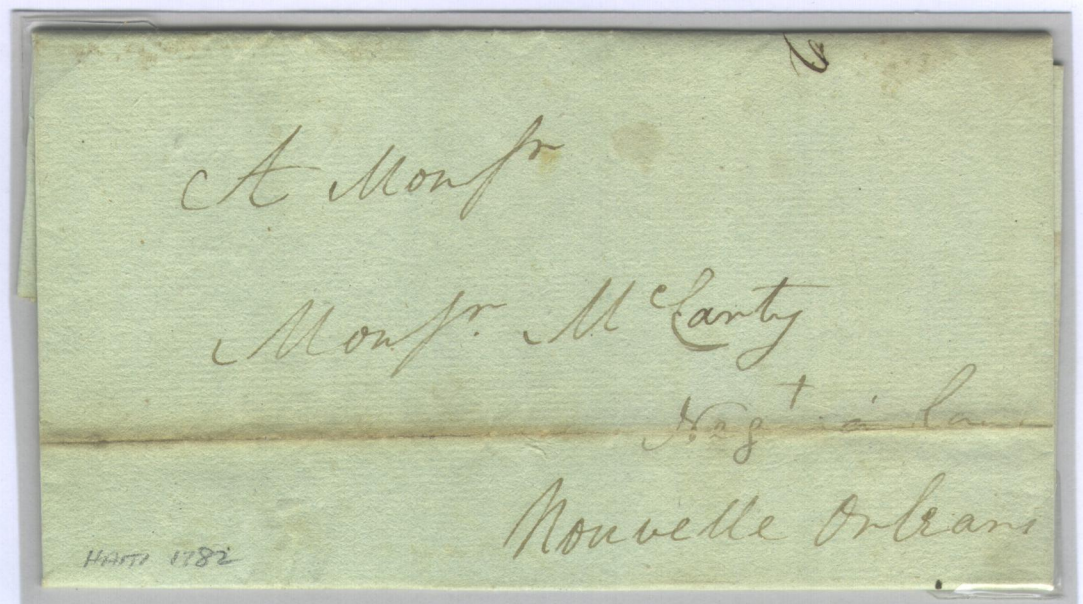 A Monsr
Monsr. McCarty
Negt à La
Nouvelle Orleans
Haiti 1782